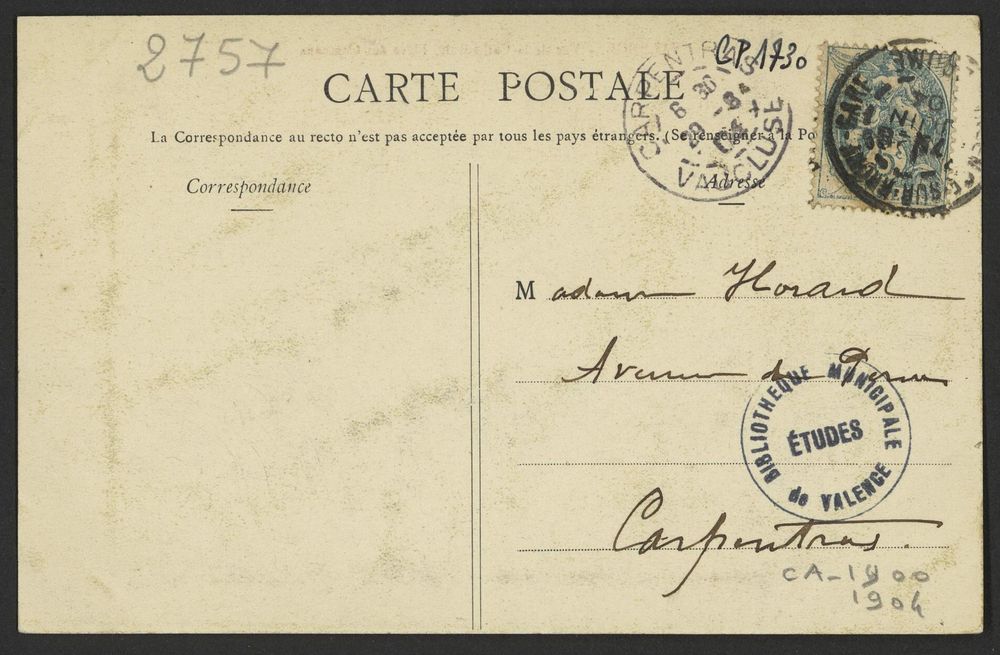 2757
CP.1730
CARTE POSTALE
La Correspondance au recto n'est pas acceptée par tous les pays étrangers. (Se renseigner à la Po
CARPENTRAS
6 30
VAUCLUSE
Correspondance
Adresse
Madame Horard
Avenue de
BIBLIOTHEQUE MUNICIPALE
ÉTUDES
de VALENCE
Carpentras.
CA-1900
1904